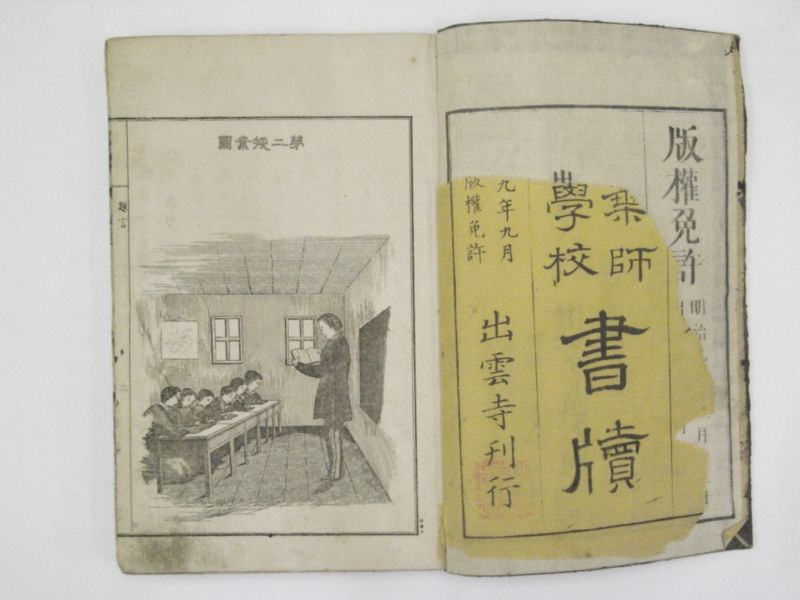 版權免許
明治
師
學校
書牘
九年九月
版權免許
出雲寺刊行
第二授業圖
題言
二